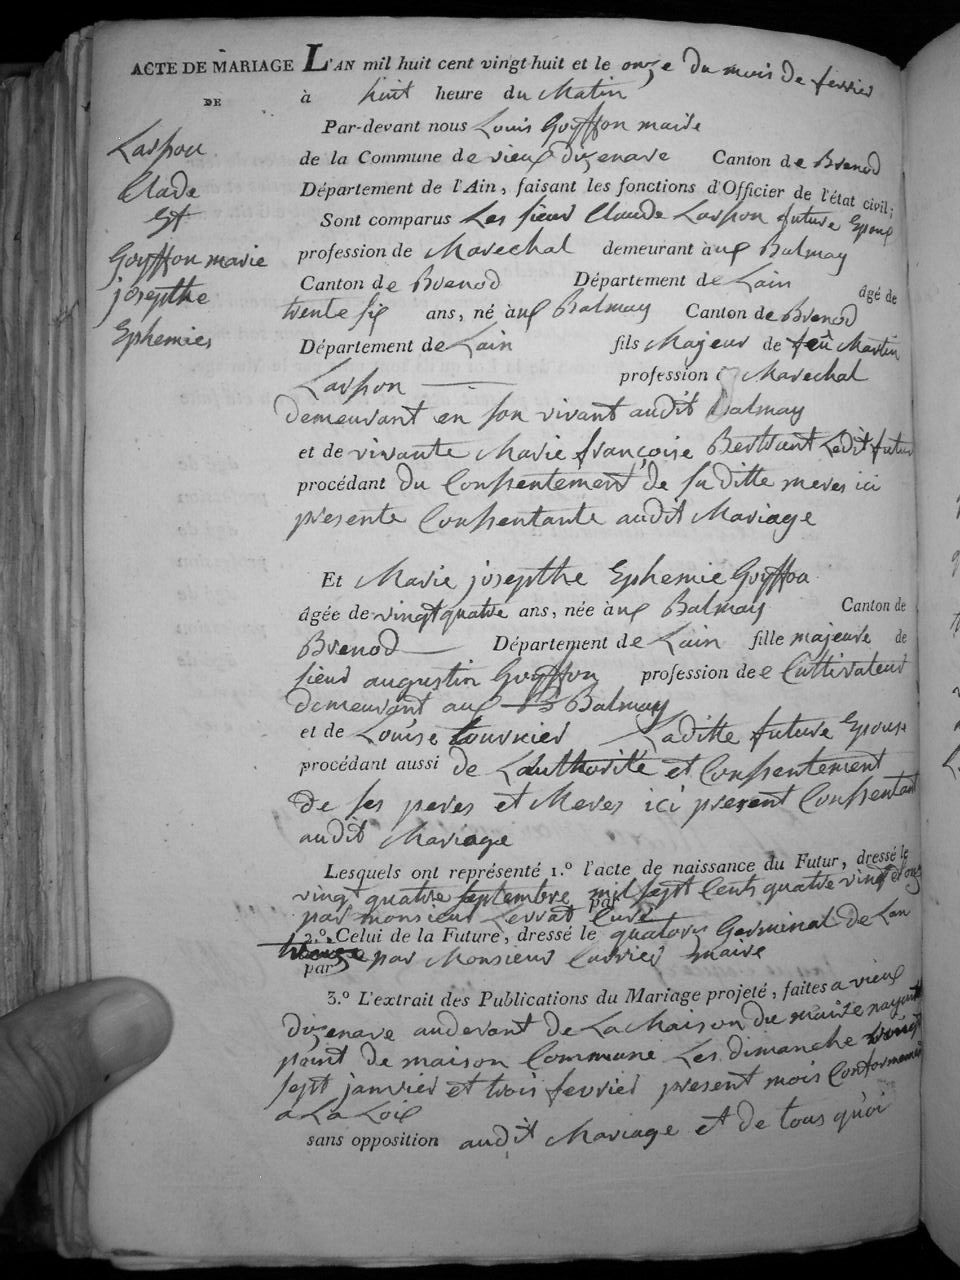 ACTE DE MARIAGE
DE
Laspou
Clade
Et
Goyffon marie
josepthe
Ephemies
L'AN mil huit cent vingt-huit et le onze du mois de fevrier
à huit heure du Matin
Par-devant nous Louis Goyffon maire
de la Commune de vieux dizenave Canton de Brenod
Département de l'Ain, faisant les fonctions d'Officier de l'état civil;
Sont comparus Les sieur Claude Laspon future Epoux
profession de Marechal demeurant aux Balmay
Canton de Brenod Département de Lain âgé de
trente six ans, né aux Balmay Canton de Brenod
Département de Lain fils Majeur de feu Martin
Laspon profession Marechal
demeurant en son vivant audit Balmay
et de vivante Marie françoise Bertrant Ledit futur
procédant du Consentement de sa ditte meres ici
presente Consentante audit Mariage
Et Marie josepthe Ephemie Goyffon
âgée de vingt quatre ans, née aux Balmay Canton de
Brenod Département de Lain fille majeure de
sieur augustin Goyffon profession de Cultivateur
demeurant aux Balmay
et de Louise tournier Laditte future Epouse
procédant aussi de Lauthorité et Consentement
de ses peres et Meres ici present Consentant
audit Mariage
Lesquels ont représenté 1.º l'acte de naissance du Futur, dressé le
vingt quatre septembre mil sept Cents quatre vingt d'onze
par
par monsieur Levrat Curé
2.º Celui de la Future, dressé le quatorze Germinal de Lan
par Monsieur Carrier maire
par
3.º L'extrait des Publications du Mariage projeté, faites a vieux
dizenave audevant de La Maison du maire nayant
point de maison Commune Les dimanche vingt
sept janvier et trois fevrier present mois Conformement
a La Loix
sans opposition audit Mariage et de tous quoi